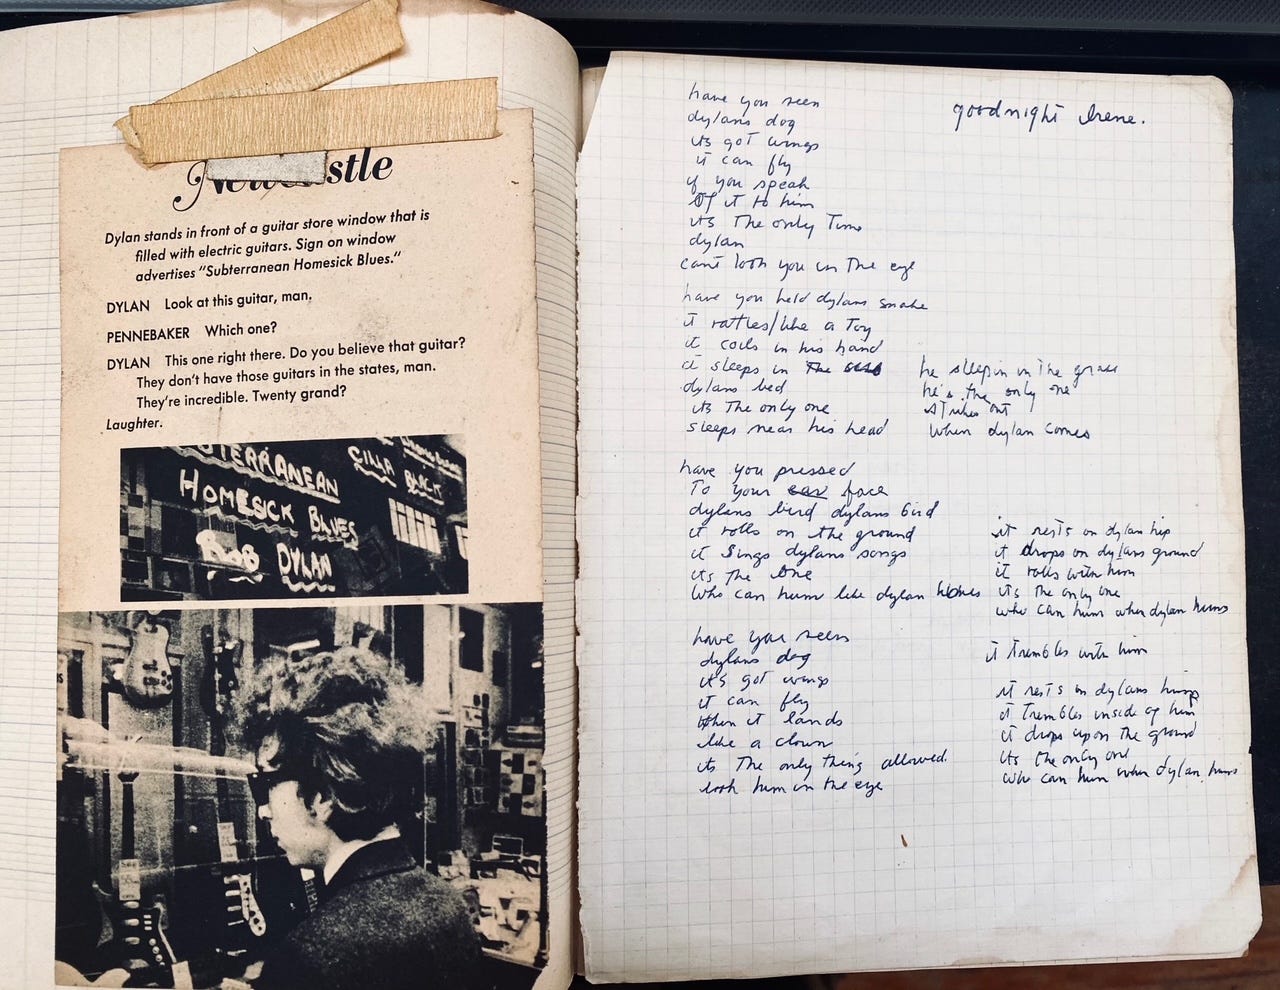 Newcastle
Dylan stands in front of a guitar store window that is
filled with electric guitars. Sign on window
advertises "Subterranean Homesick Blues."
DYLAN Look at this guitar, man.
PENNEBAKER Which one?
DYLAN This one right there. Do you believe that guitar?
They don't have those guitars in the states, man.
They're incredible. Twenty grand?
Laughter.
TERRANEAN
HOMESICK BLUES
BOB DYLAN
CILLA BLACK
goodnight Irene.
have you seen
dylans dog
its got wings
it can fly
if you speak
of it to him
its the only time
dylan
cant look you in the eye
have you held dylans snake
it rattles/like a toy
it coils in his hand
it sleeps in the
dylans bed
its the only one
sleeps near his head
he sleeps in the grass
he's the only one
strikes out
when dylan comes
have you pressed
to your ear face
dylans bird dylans bird
it rolls on the ground
it sings dylans songs
its the one
who can hum like dylan
it rests on dylan hip
it drops on dylans ground
it rolls with him
its the only one
who can hum when dylan hums
have you seen
dylans dog
it's got wings
it can fly
when it lands
like a clown
its the only thing allowed.
look him in the eye
it trembles with him
it rests in dylans
it trembles inside of him
it drops upon the ground
its the only one
who can hum when dylan hums